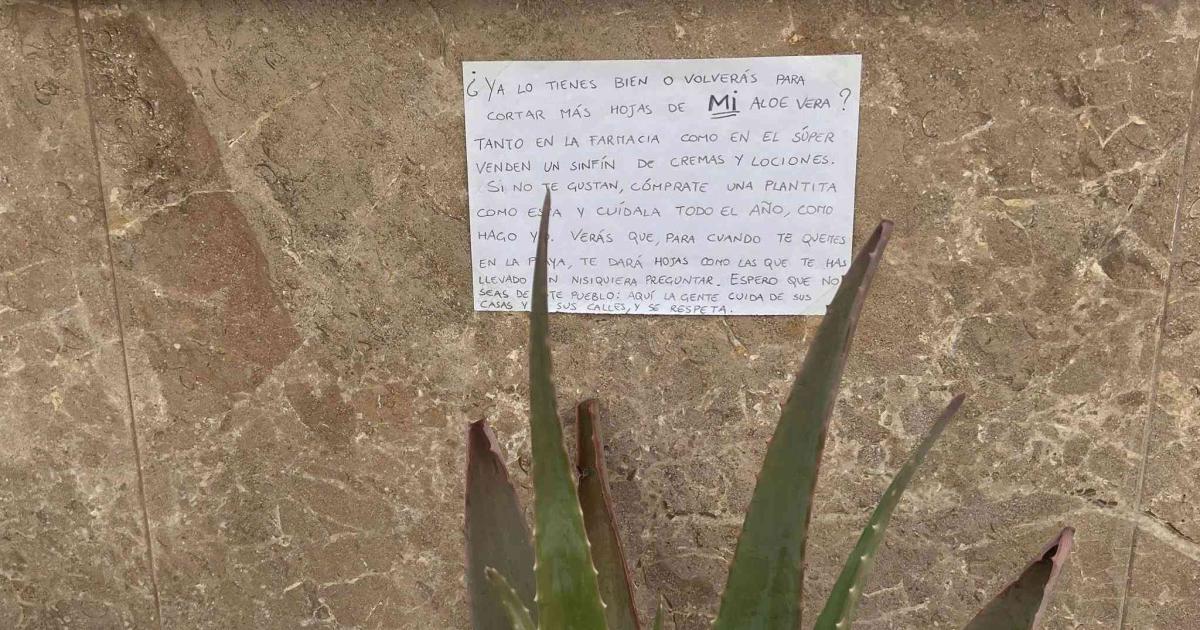 ¿YA LO TIENES BIEN O VOLVERÁS PARA
CORTAR MÁS HOJAS DE Mi ALOE VERA?
TANTO EN LA FARMACIA COMO EN EL SÚPER
VENDEN UN SINFÍN DE CREMAS Y LOCIONES.
SI NO TE GUSTAN, CÓMPRATE UNA PLANTITA
COMO ESTA Y CUÍDALA TODO EL AÑO, COMO
HAGO YO. VERÁS QUE, PARA CUANDO TE QUEMES
EN LA PLAYA, TE DARÁ HOJAS COMO LAS QUE TE HAS
LLEVADO SIN NISIQUIERA PREGUNTAR. ESPERO QUE NO
SEAS DE ESTE PUEBLO: AQUÍ LA GENTE CUIDA DE SUS
CASAS Y SUS CALLES, Y SE RESPETA.